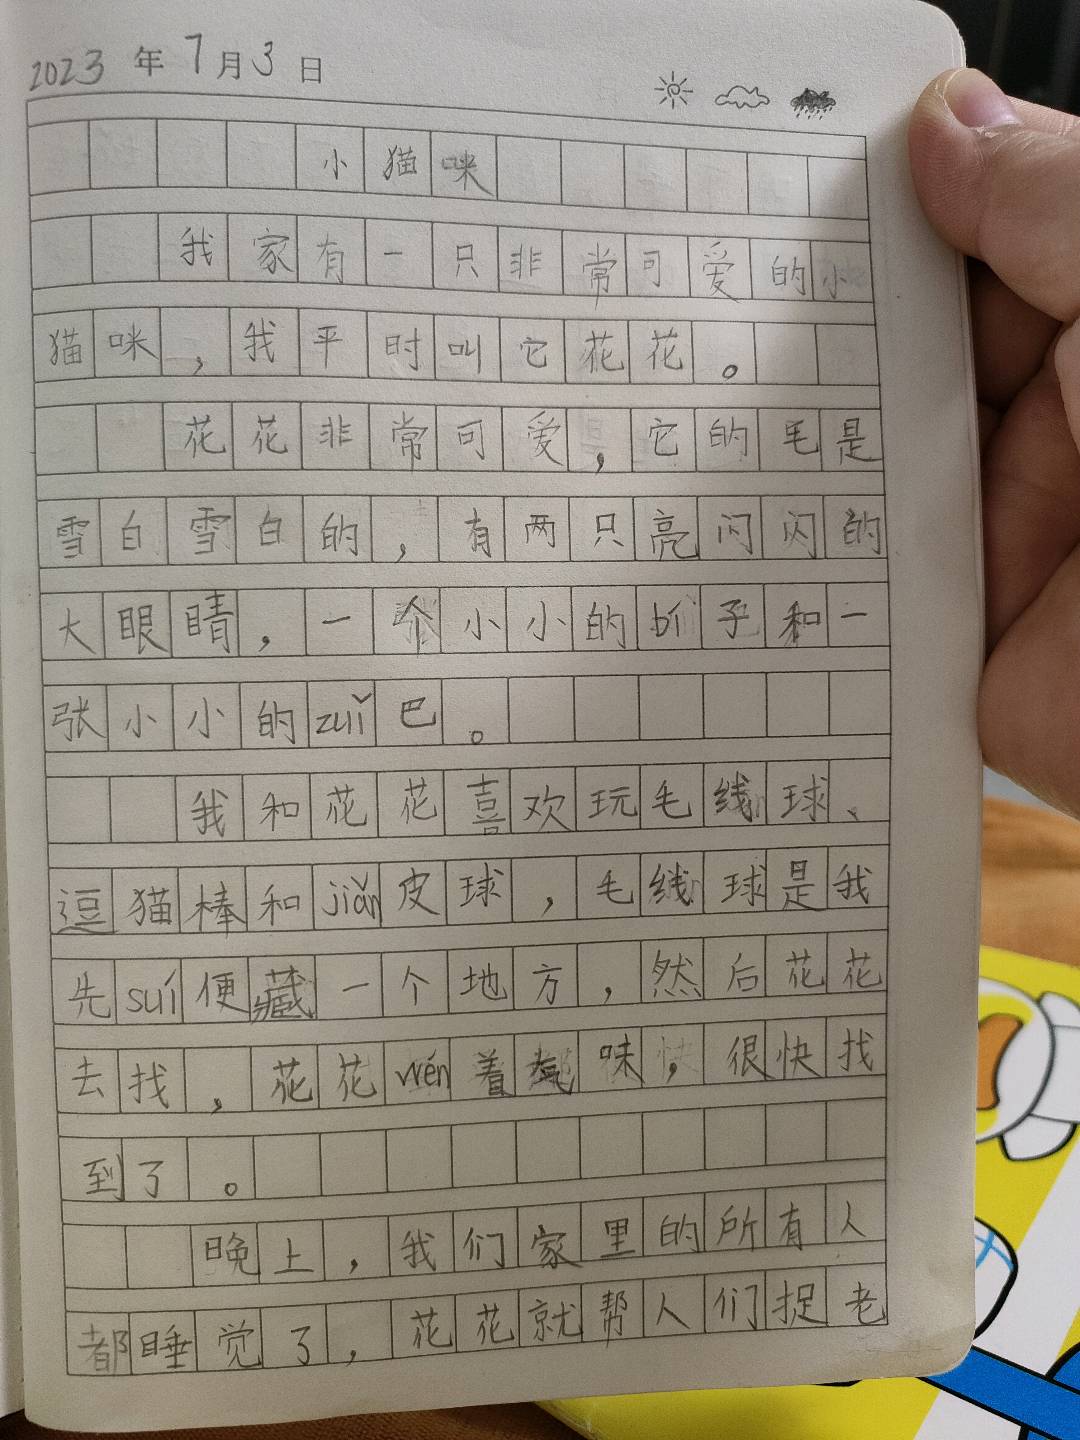 2023年7月3日
小猫咪
我家有一只非常可爱的小
猫咪，我平时叫它花花。
花花非常可爱，它的毛是
雪白雪白的，有两只亮闪闪的
大眼睛，一个小小的bí子和一
张小小的zuǐ巴。
我和花花喜欢玩毛线球、
逗猫棒和jiǎn皮球，毛线球是我
先suí便藏一个地方，然后花花
去找，花花wén着气味，很快找
到了。
晚上，我们家里的所有人
都睡觉了，花花就帮人们捉老